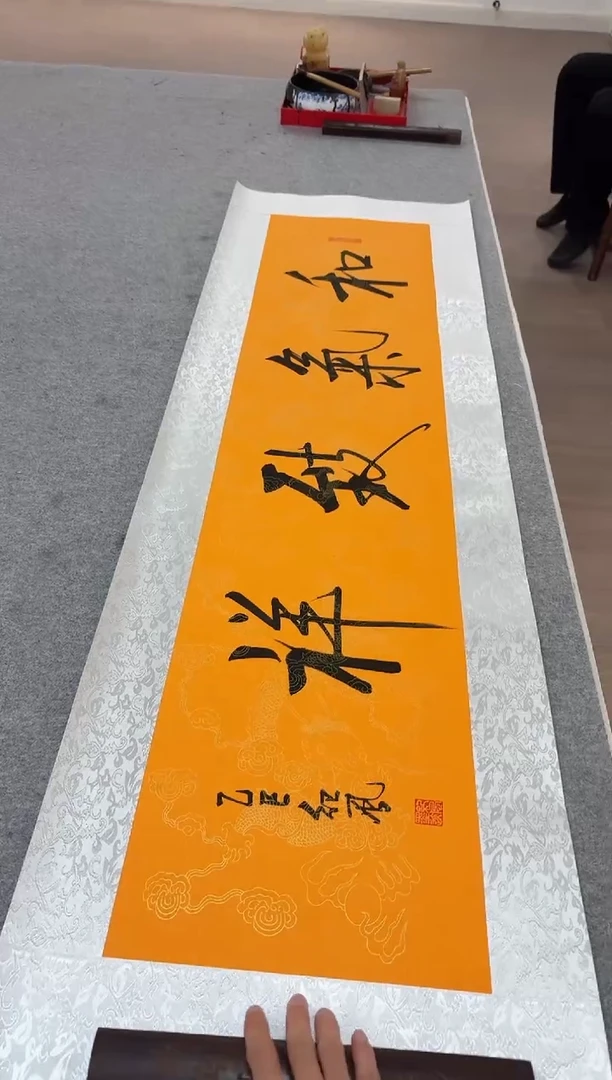 和氣致祥
乙巳